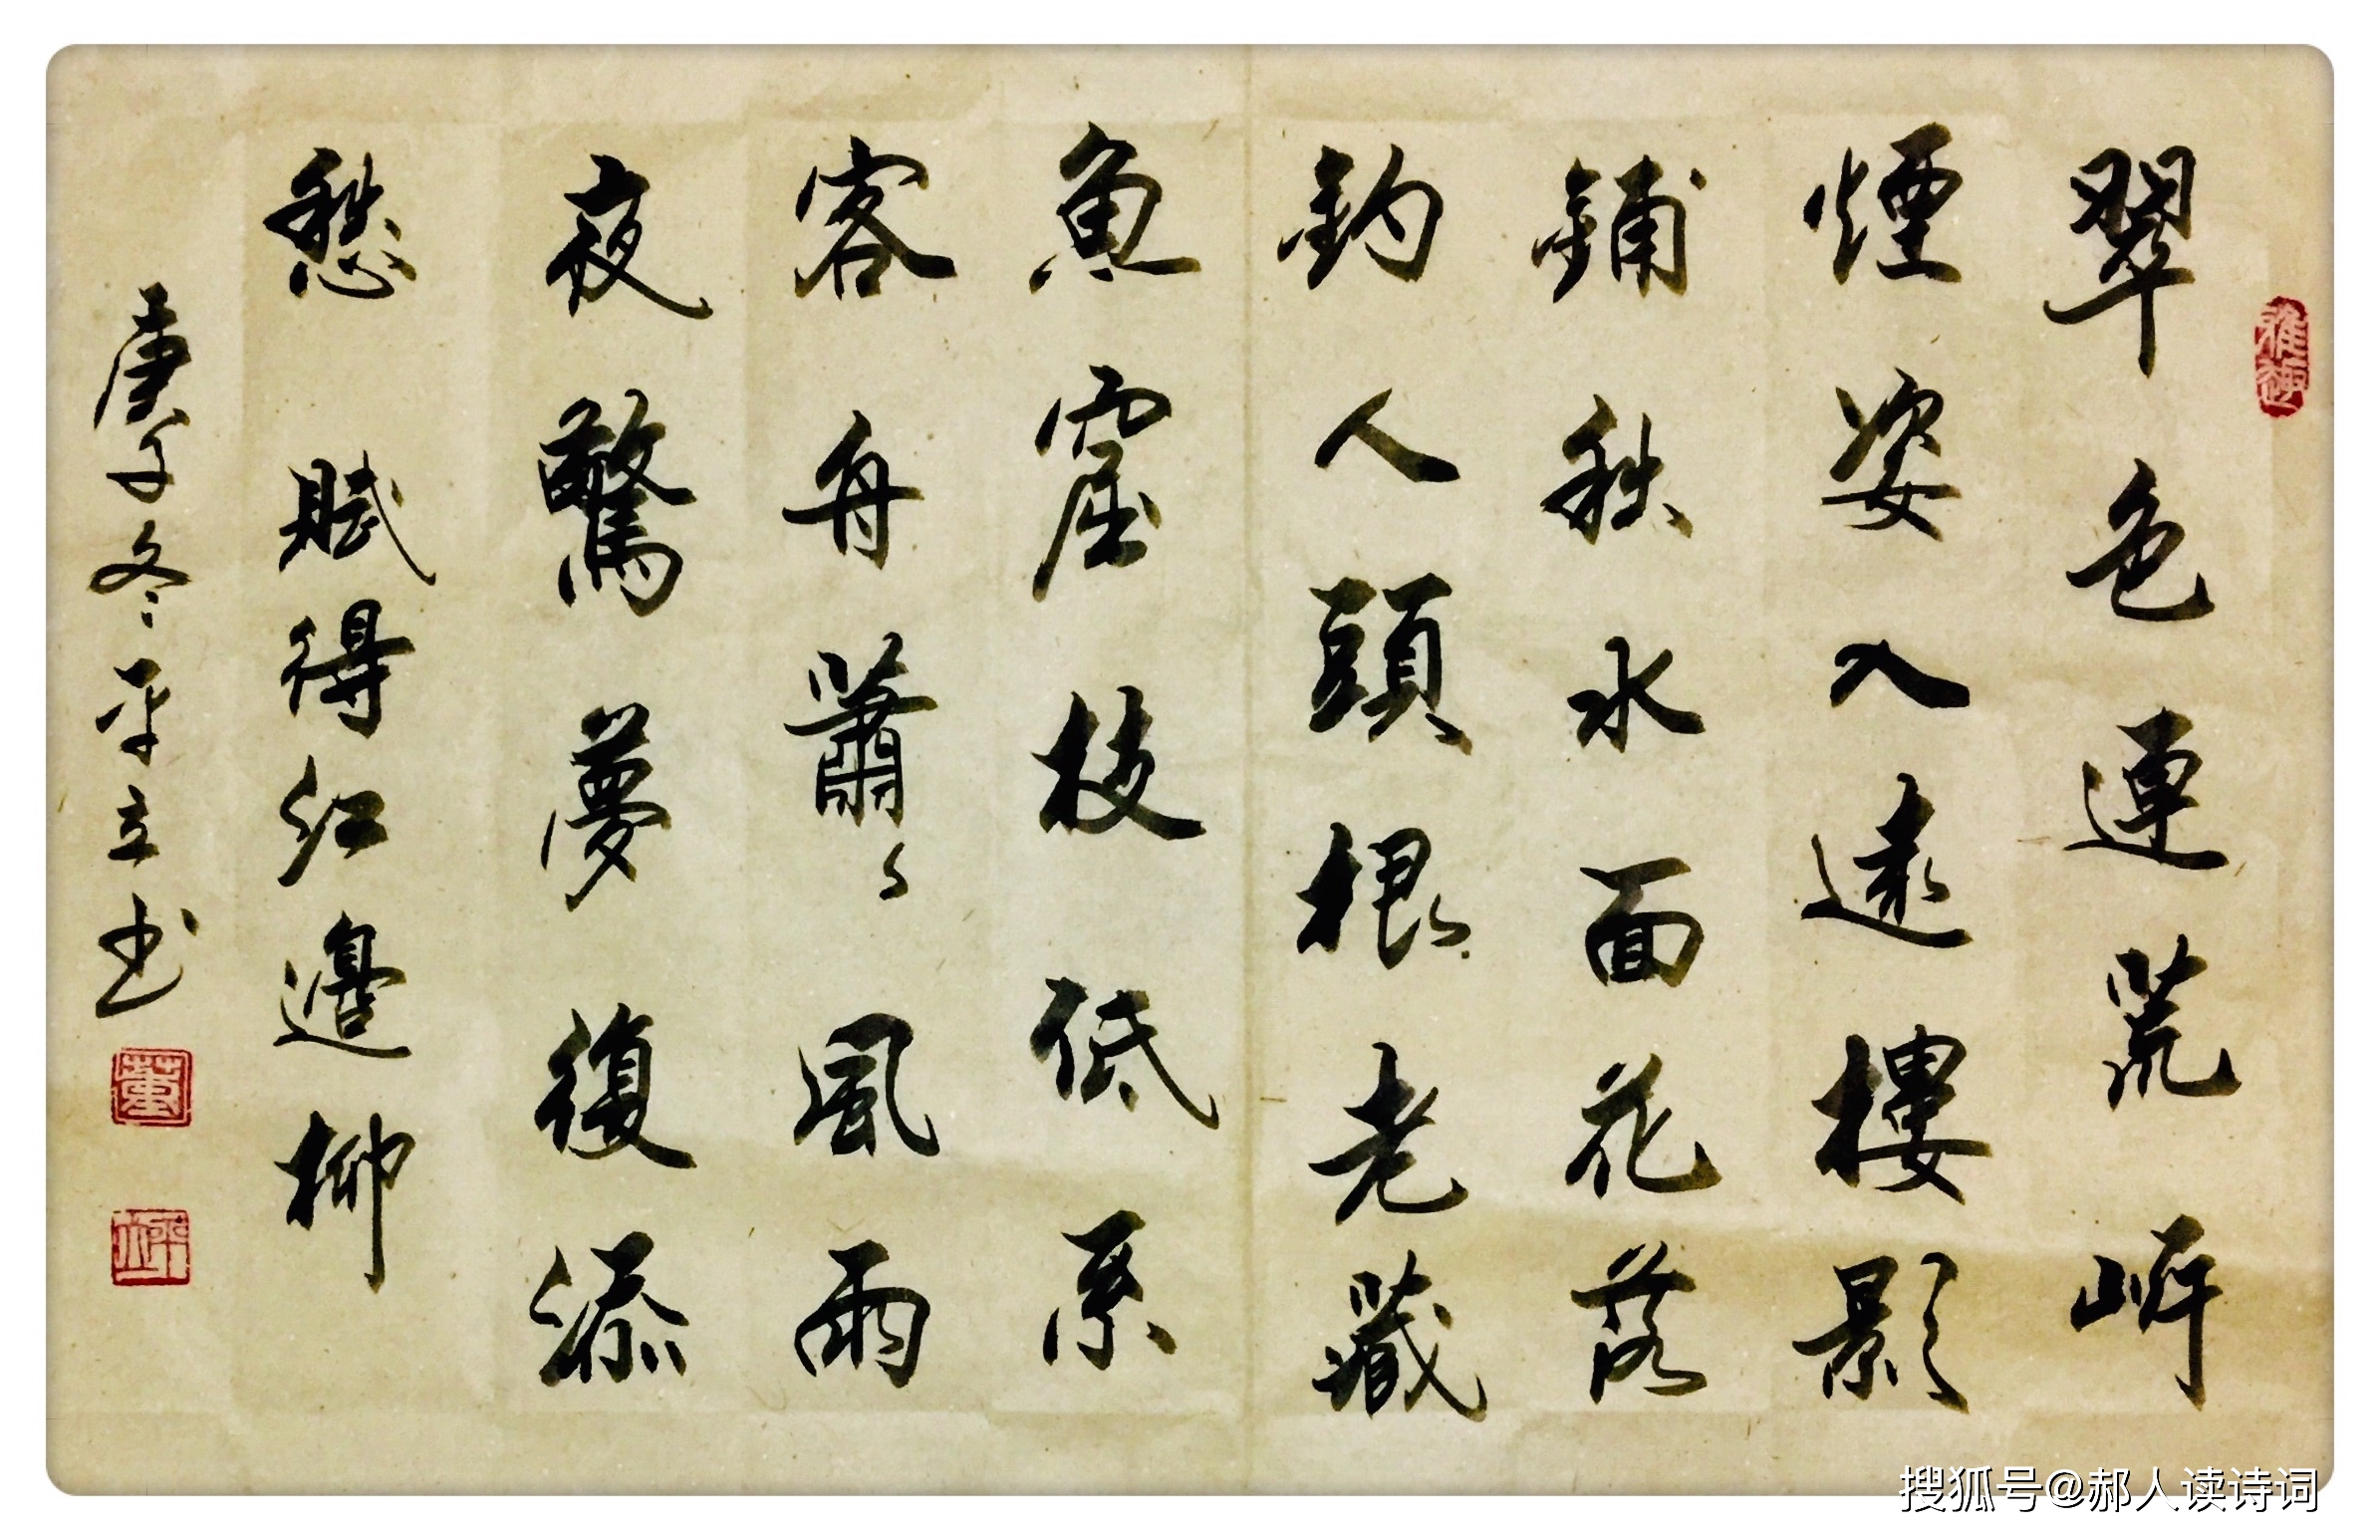 翠色連荒岍
煙姿入遠樓影
鋪秋水面花落
釣人頭根老藏
魚窟枝低系
客舟蕭々風雨
夜驚夢復添
愁 賦得江邊柳
庚子冬平立书
董
搜狐号@郝人读诗词